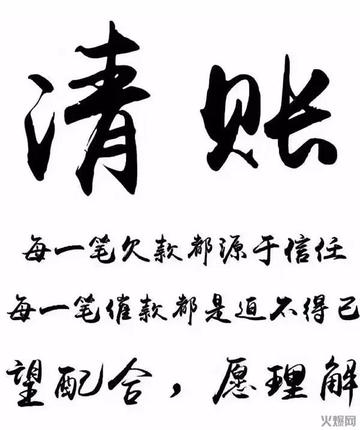 清账
每一笔欠款都源于信任
每一笔催款都是迫不得已
望配合，愿理解
火爆网